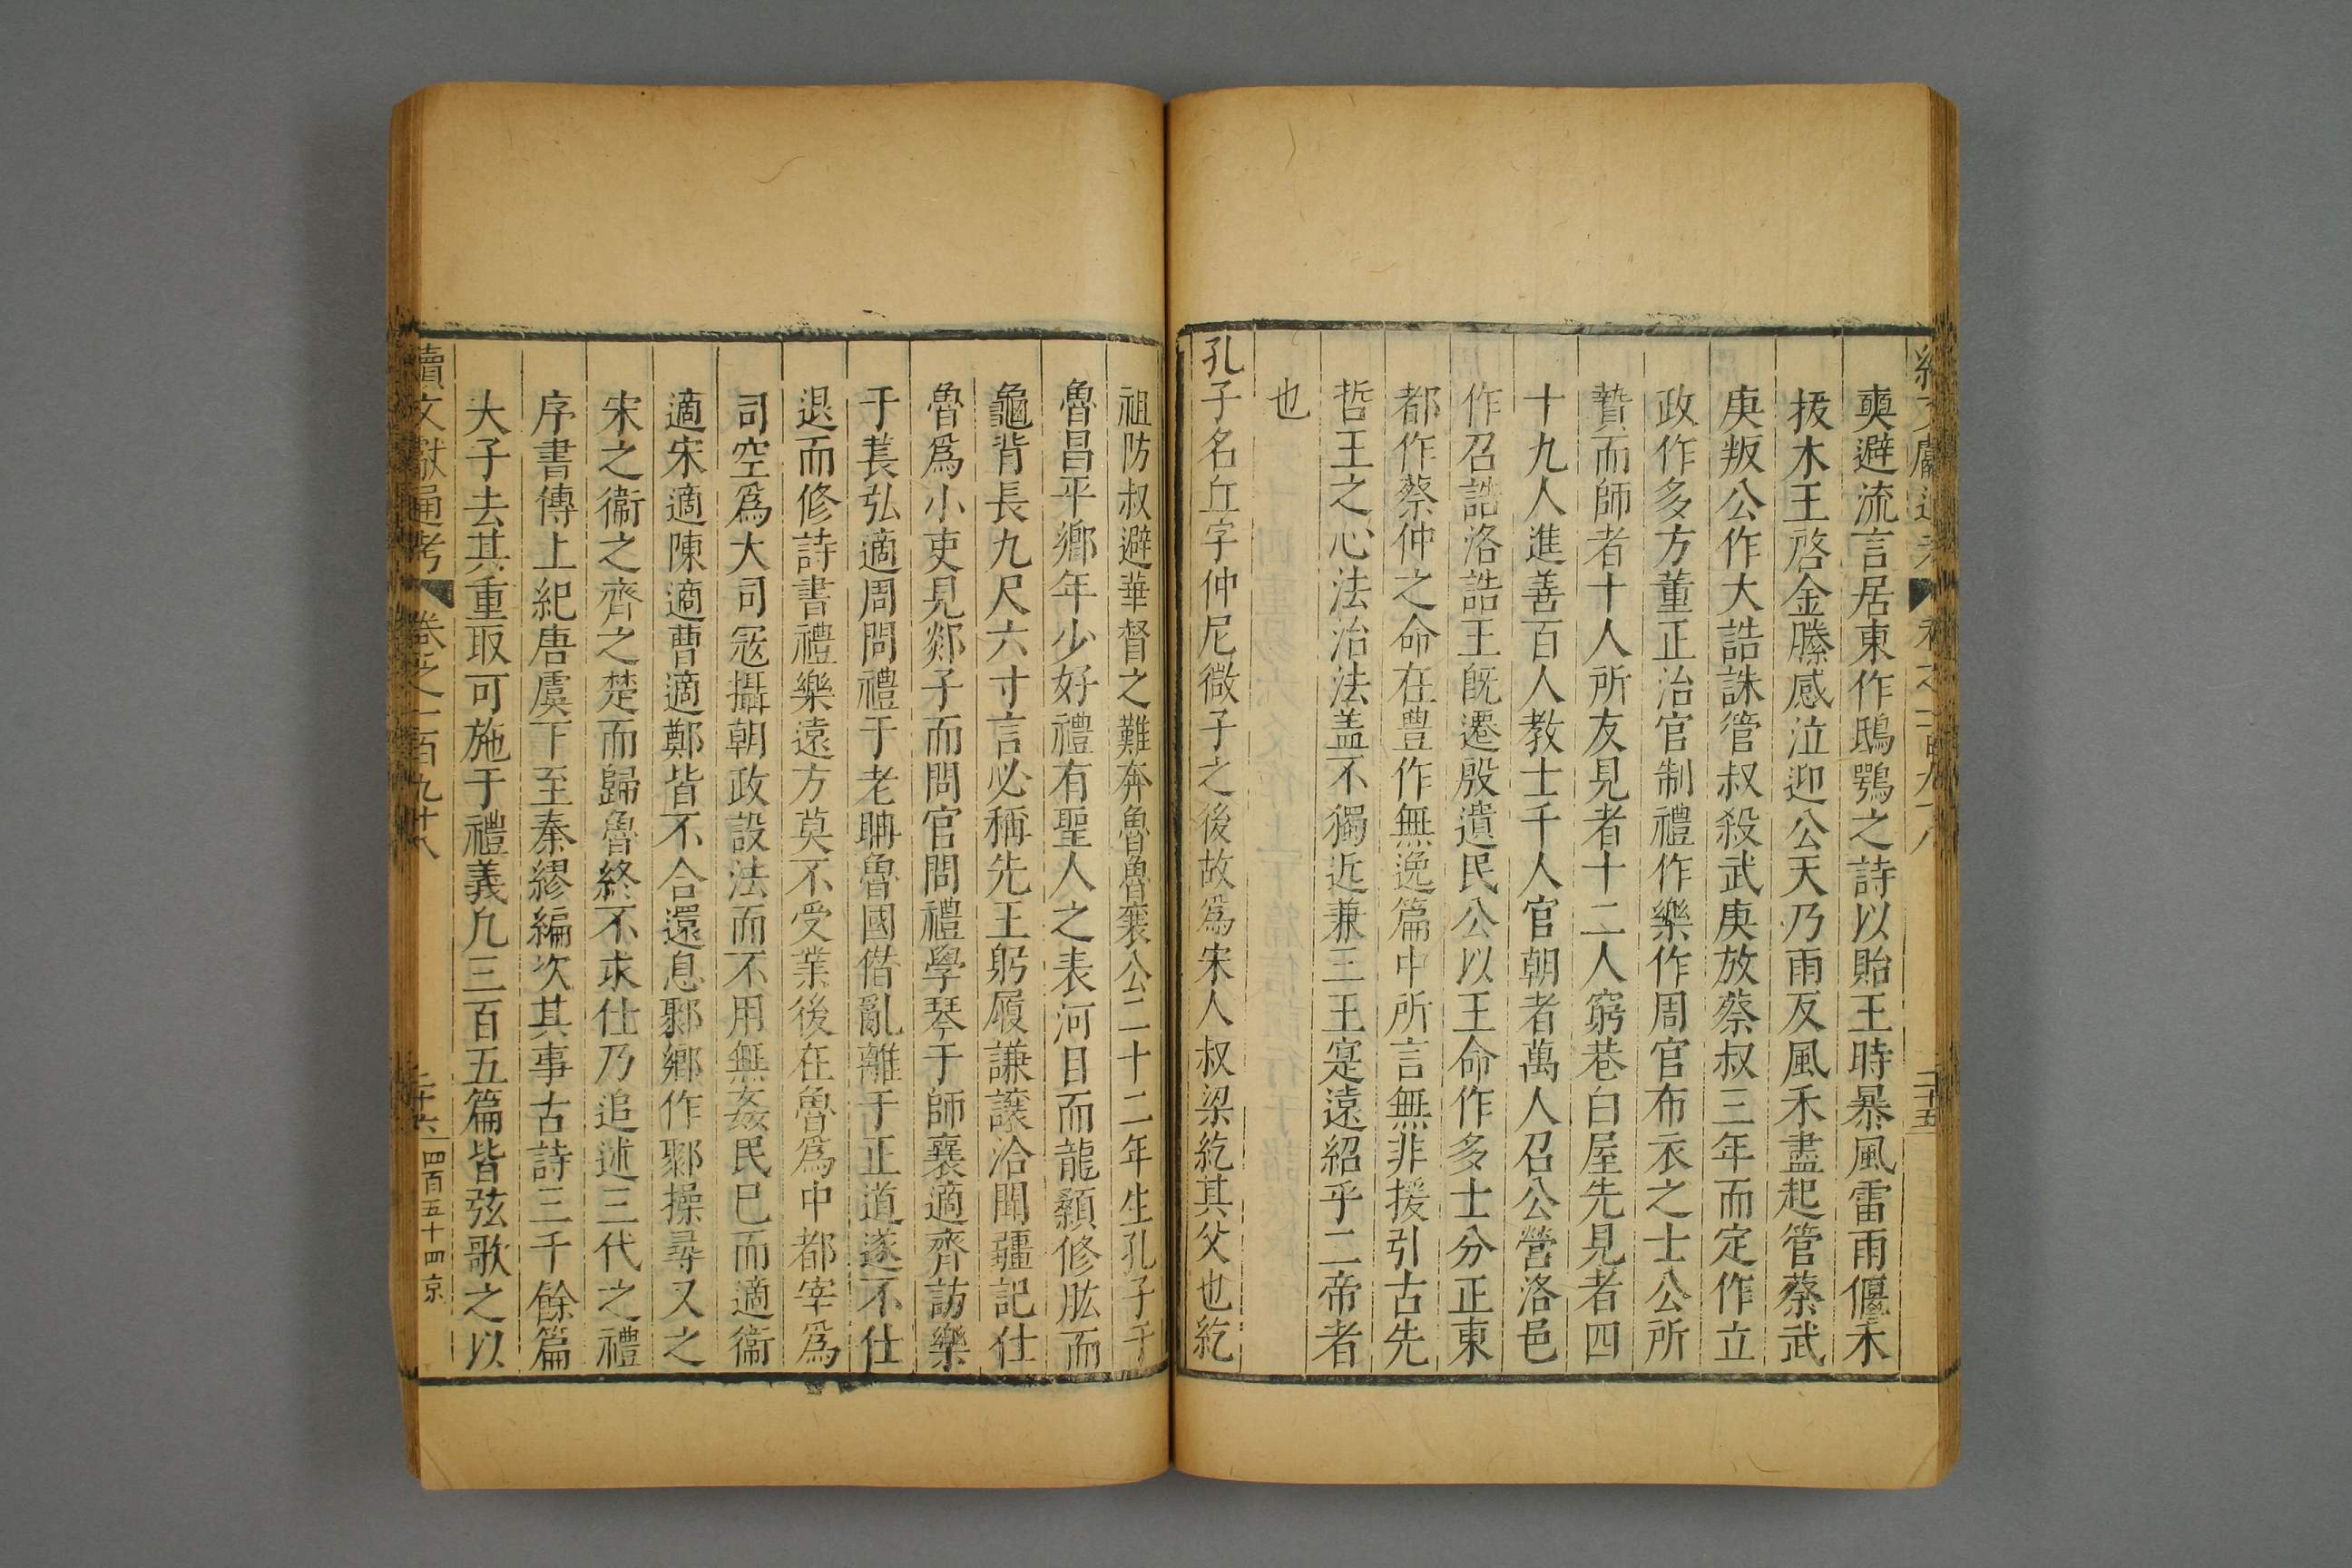 續文獻通考 卷之一百九十八 二十五
奭避流言居東作鴟鴞之詩以貽王時暴風雷雨偃禾
拔木王啓金縢感泣迎公天乃雨反風禾盡起管蔡武
庚叛公作大誥誅管叔殺武庚放蔡叔三年而定作立
政作多方董正治官制禮作樂作周官布衣之士公所
贄而師者十人所友見者十二人窮巷白屋先見者四
十九人進善百人教士千人官朝者萬人召公營洛邑
作召誥洛誥王旣遷殷遺民公以王命作多士分正東
都作蔡仲之命在豊作無逸篇中所言無非援引古先
哲王之心法治法盖不獨近兼三王寔遠紹乎二帝者
也
孔子名丘字仲尼微子之後故爲宋人叔梁紇其父也紇
祖防叔避華督之難奔魯魯襄公二十二年生孔子于
魯昌平鄉年少好禮有聖人之表河目而龍顙修肱而
龜背長九尺六寸言必稱先王躬履謙讓洽聞疆記仕
魯爲小吏見郯子而問官問禮學琴于師襄適齊訪樂
于萇弘適周問禮于老聃魯國僭亂離于正道遂不仕
退而修詩書禮樂遠方莫不受業後在魯爲中都宰爲
司空爲大司冦攝朝政設法而不用無姦民已而適衞
適宋適陳適曹適鄭皆不合還息鄹鄉作鄹操尋又之
宋之衞之齊之楚而歸魯終不求仕乃追述三代之禮
序書傳上紀唐虞下至秦繆編次其事古詩三千餘篇
大子去其重取可施于禮義凢三百五篇皆弦歌之以
續文獻通考 卷之一百九十八 二十六 四百五十四京